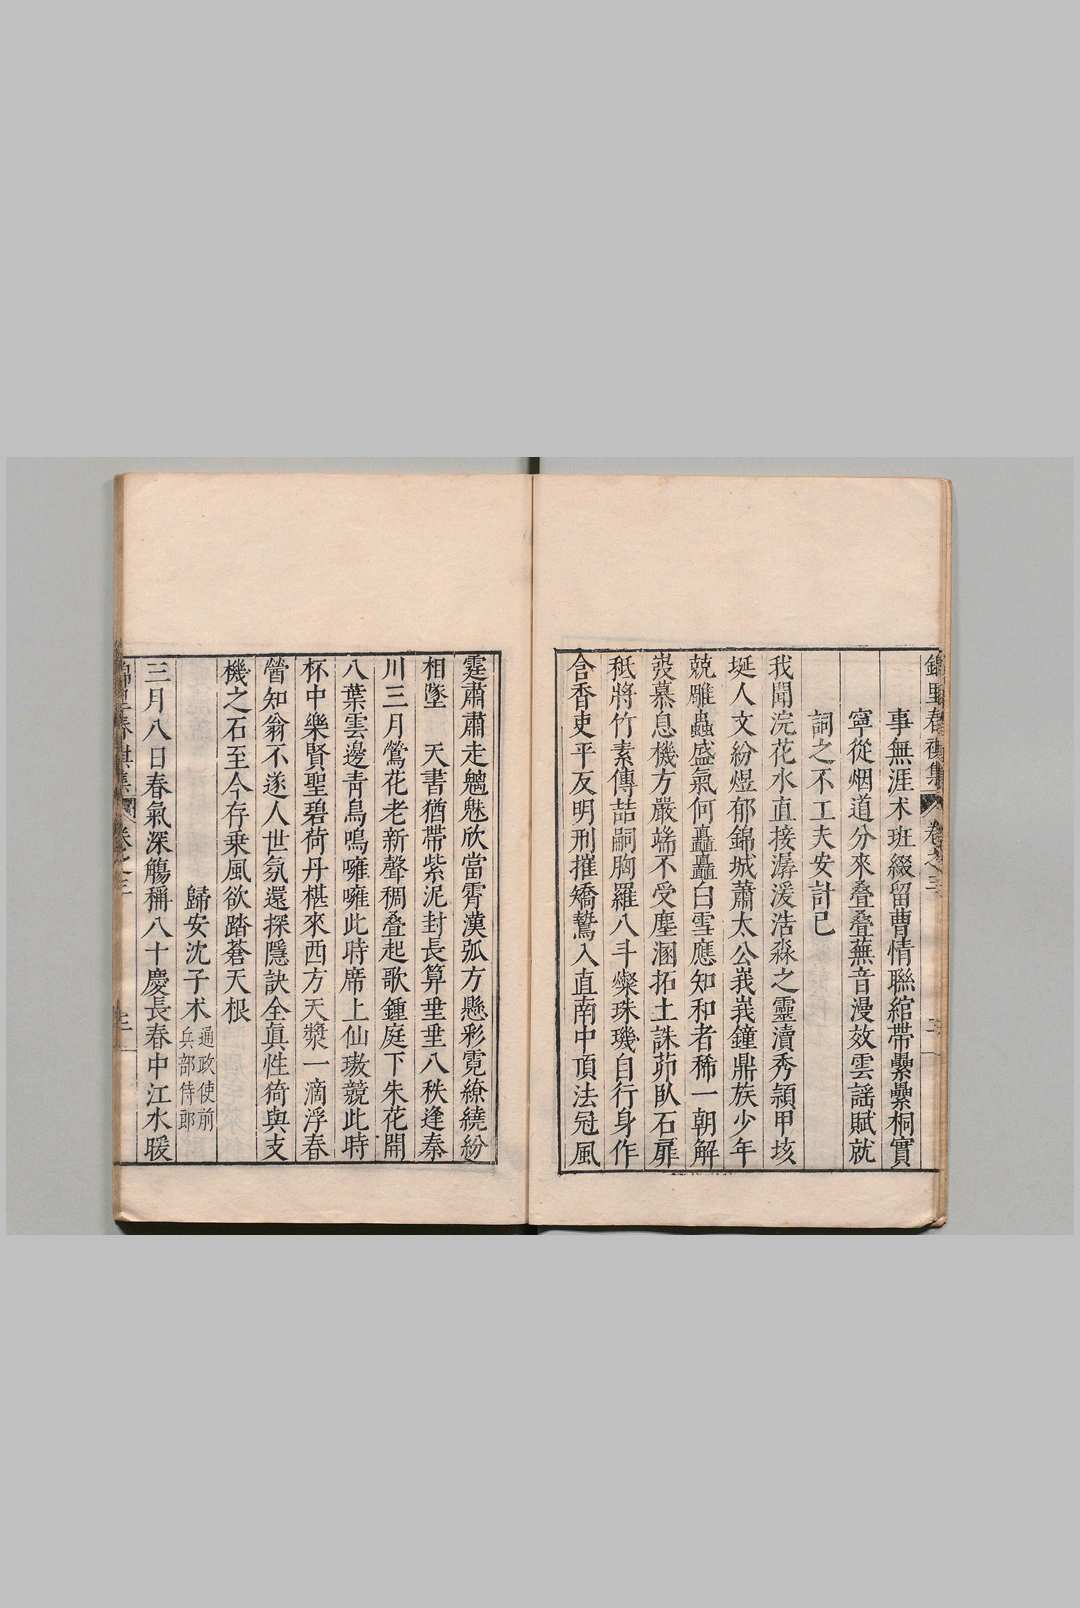 事無涯术班綴留曹情聯綰帶纍纍桐實
寧從烟道分來叠叠蕪音漫效雲謠賦就
詞之不工夫安計已
我聞浣花水直接潺湲浩淼之靈瀆秀頴甲垓
埏人文紛煜郁錦城蕭太公峩峩鐘鼎族少年
兢雕蟲盛氣何矗矗白雪應知和者稀一朝解
裝慕息機方嚴端不受塵溷拓土誅茆臥石扉
秪將竹素傳喆嗣胸羅八斗燦珠璣自行身作
含香吏平反明刑摧矯騺入直南中頂法冠風
霆肅肅走魑魅欣當霄漢弧方懸彩霓繚繞紛
相墜　天書猶帶紫泥封長算垂垂八秩逢秦
川三月鶯花老新聲稠叠起歌鍾庭下朱花開
八葉雲邊青鳥鳴噰噰此時席上仙璈競此時
杯中樂賢聖碧荷丹椹來西方天漿一滴浮春
嘗知翁不遂人世氛還探隱訣全眞性猗與支
機之石至今存乗風欲踏蒼天根
歸安沈子术通政使前兵部侍郎
三月八日春氣深觴稱八十慶長春中江水暖
卷之三
三